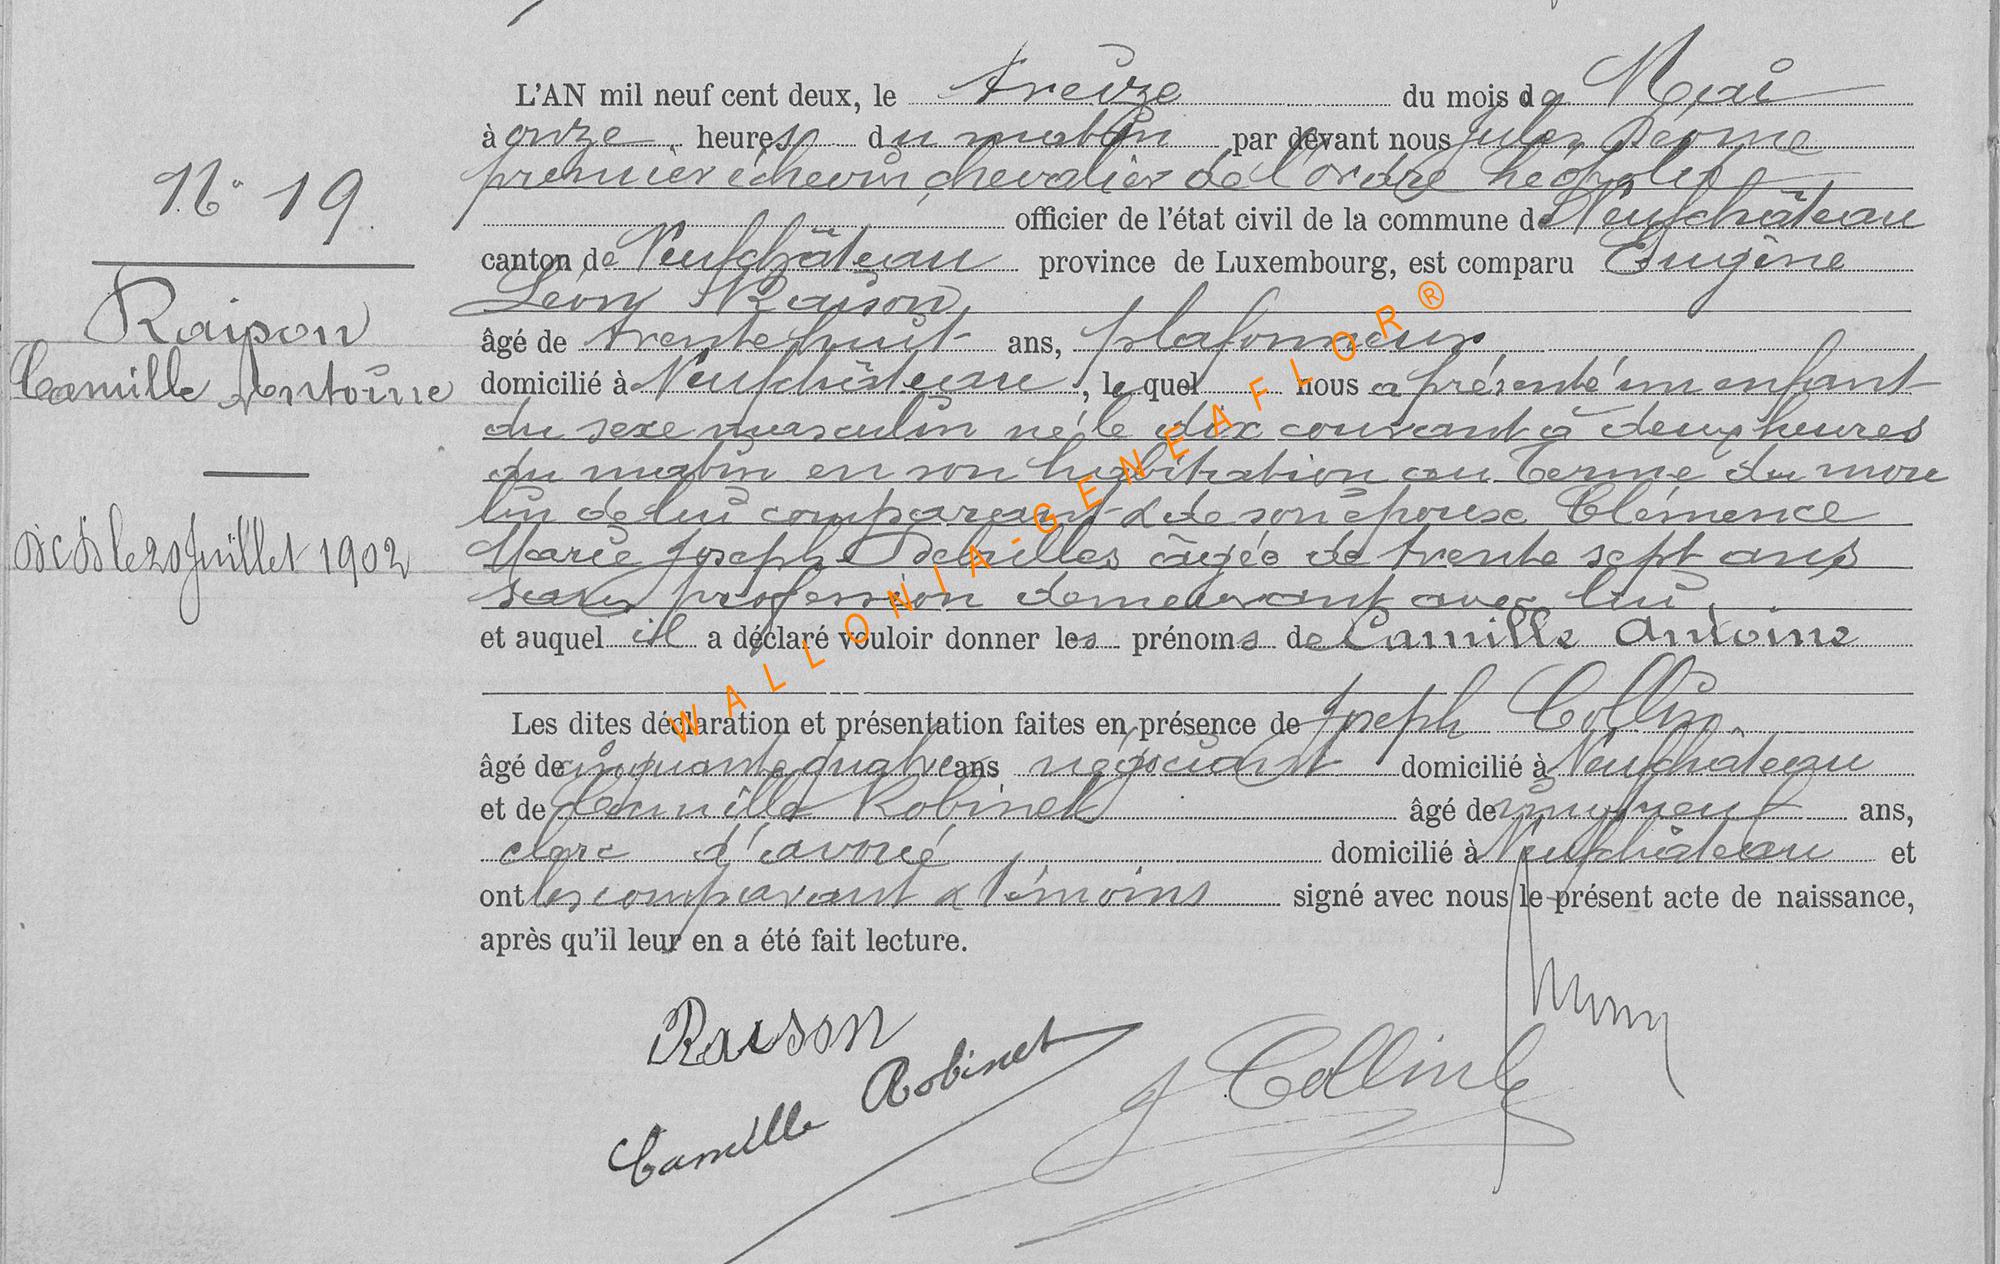 N° 19
Raison
Camille Antoine
DCD le 20 Juillet 1902
L'AN mil neuf cent deux, le treize du mois de Mai
à onze heures du matin par devant nous Jules
premier échevin, chevalier de l'ordre Léopold
officier de l'état civil de la commune de Neufchâteau
canton de Neufchâteau province de Luxembourg, est comparu Eugène
Léon Raison
âgé de trente huit ans, plafonneur
domicilié à Neufchâteau, lequel nous a présenté un enfant
du sexe masculin né le dix courant à deux heures
du matin en son habitation au Terme du mou
lin de lui comparant & de son épouse Clémence
Marie Joseph âgée de trente sept ans
sans profession demeurant avec lui,
et auquel il a déclaré vouloir donner les prénoms de Camille Antoine
Les dites déclaration et présentation faites en présence de Joseph Collin
âgé de cinquante quatre ans négociant domicilié à Neufchâteau
et de Camille Robinet âgé de vingt neuf ans,
clerc d'avoué domicilié à Neufchâteau et
ont les comparant & témoins signé avec nous le présent acte de naissance,
après qu'il leur en a été fait lecture.
Raison
Camille Robinet
J Collin
WALLONIA-GENEAFLOR®